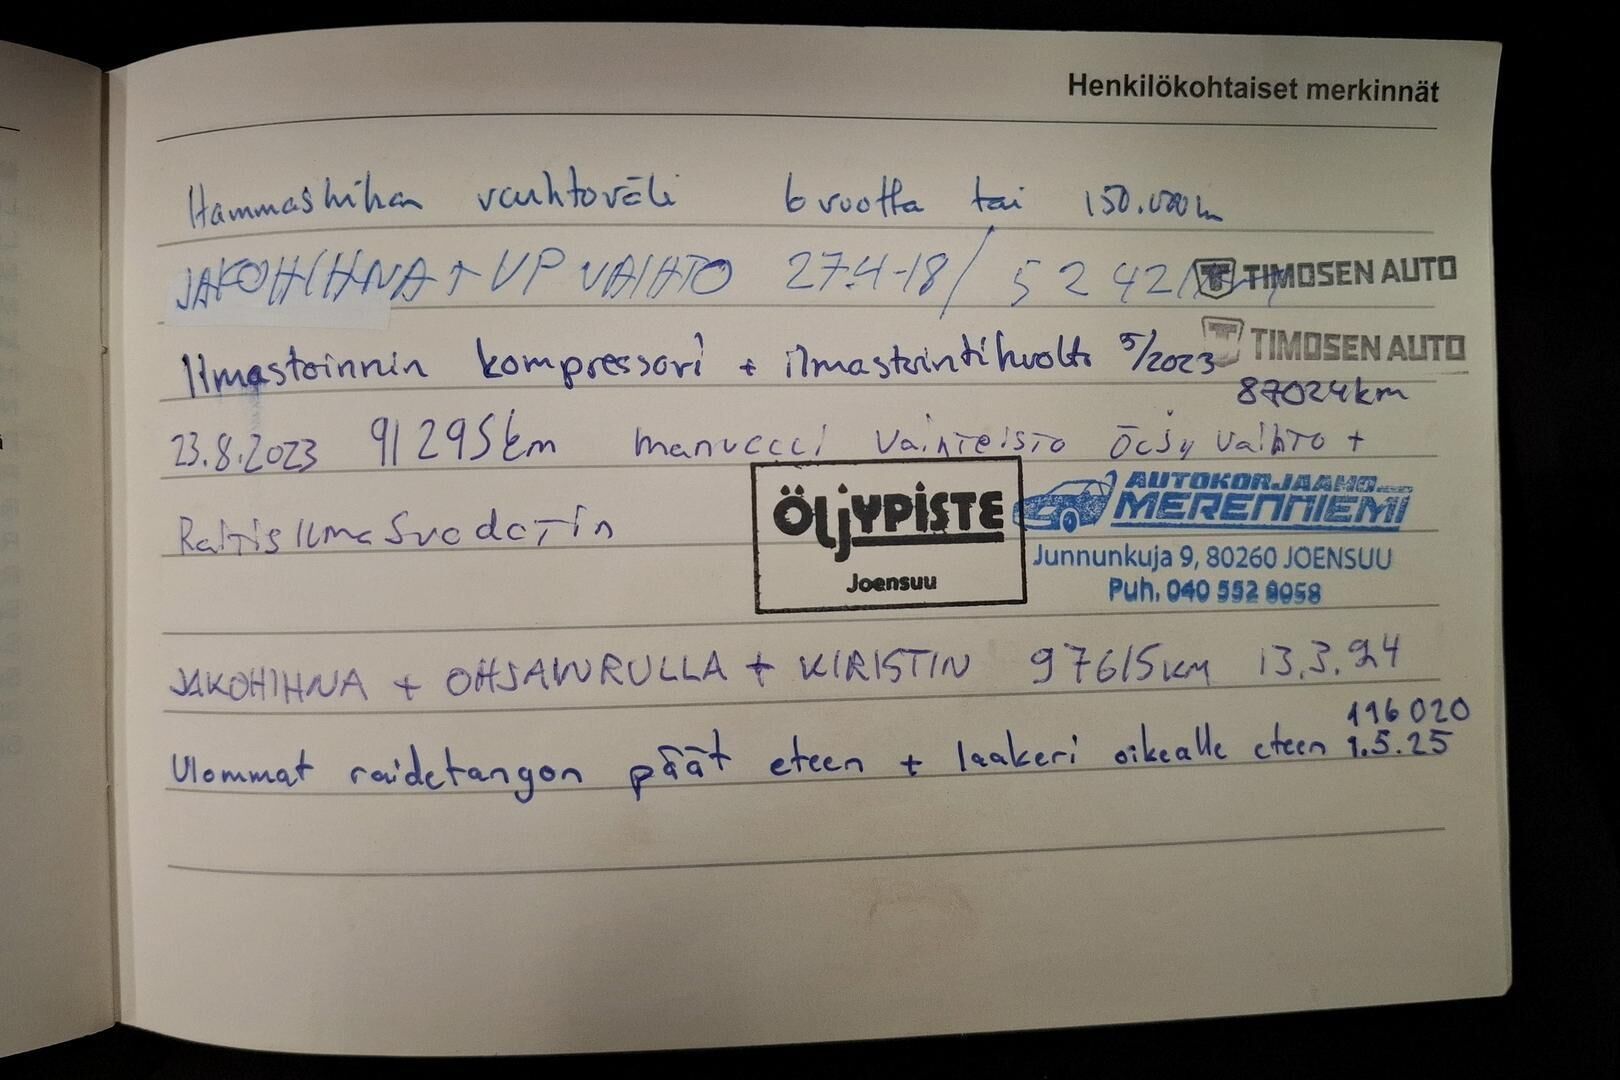 Henkilökohtaiset merkinnät
Hammashihnan vaihtoväli 6 vuotta tai 150.000km
JAKOHIHNA + VP VAIHTO 27.4-18/ 5242 TIMOSEN AUTO
Ilmastoinnin kompressori + ilmastointihuolto 5/2023 TIMOSEN AUTO
87024km
23.8.2023 91295km manuelli Vaihteisto Öljy Vaihto +
Raitis Ilma Suodatin
ÖljyPISTE
Joensuu
AUTOKORJAAMO
MERENNIEMI
Junnunkuja 9, 80260 JOENSUU
Puh. 040 552 8058
JAKOHIHNA + OHJAUSRULLA + KIRISTIN 97615km 13.3.24
116020
Ulommat raidetangon päät eteen + laakeri oikealle eteen 1.5.25